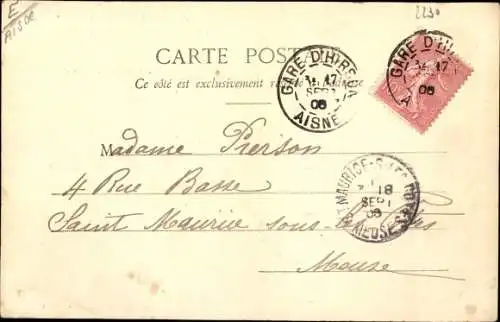 E
AISNE
2230
CARTE POSTALE
Ce côté est exclusivement réservé à l'adresse
GARE D'HIRSON
17
SEPT
06
AISNE
GARE D'HIRSON
17
06
Madame Pierson
4 Rue Basse
Saint Maurice sous-les-Côtes
Meuse
ST MAURICE-S-LES-CÔTES
18
SEPT
06
MEUSE